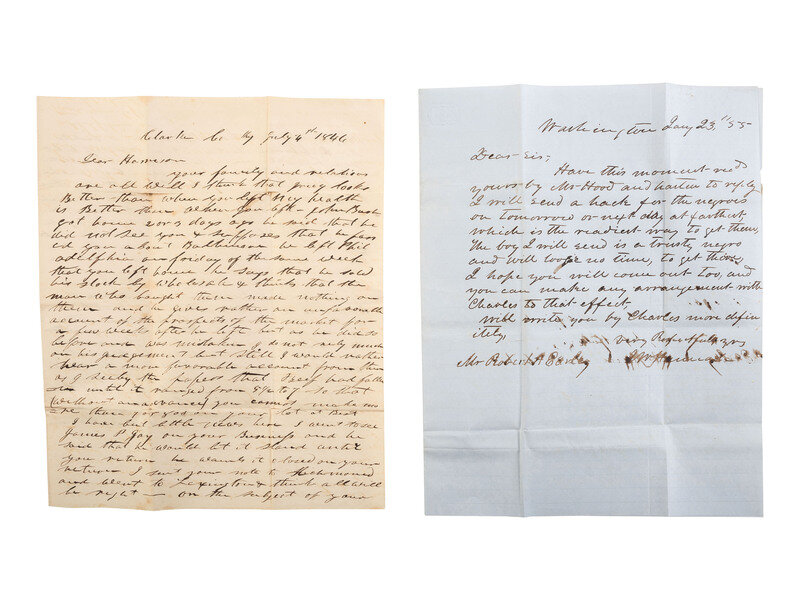 Clarke Co Ky July 4th 1846
Dear Harrison
your family and relations
are all well I think that
looks
Better than when you left My health
is Better than when you left John Bush
got home 2 or 3 days ago he said that he
did not see you & supposes that he pass
ed you about Baltimore he left Phil
adelphia on friday of the same week
that you left home he says that he sold
his stock by wholesale & thinks that the
man who bought them made nothing on
them and he gives rather an unfavorable
account of the prospects of the market for
a few weeks after he left but as he did so
before and was mistaken I do not rely much
on his judgement but still I would rather
hear a more favorable account from him
as I see by the papers that Beef had fallen
until it ranged from to so that
(without an advance) you cannot make more
than on your lot at Best
I have but little news here I went to see
James Gay on your Business and he
said that he would let it stand until
you return he wants it closed on your
return I sent your note to Richmond
and went to Lexington & think all will
be right — on the subject of your
Washington Jany 23, '55
Dear Sir;
Have this moment recd
yours by Mr Hood and hasten to reply
I will send a hack for the negroes
on tomorrow or next day at farthest
which is the readiest way to get them,
The boy I will send is a trusty negro
and will loose no time, to get there,
I hope you will come out too, and
you can make any arrangement with
Charles to that effect,
Will write you by Charles more defin
itely,
Very Respectfully yrs
Mr Robert